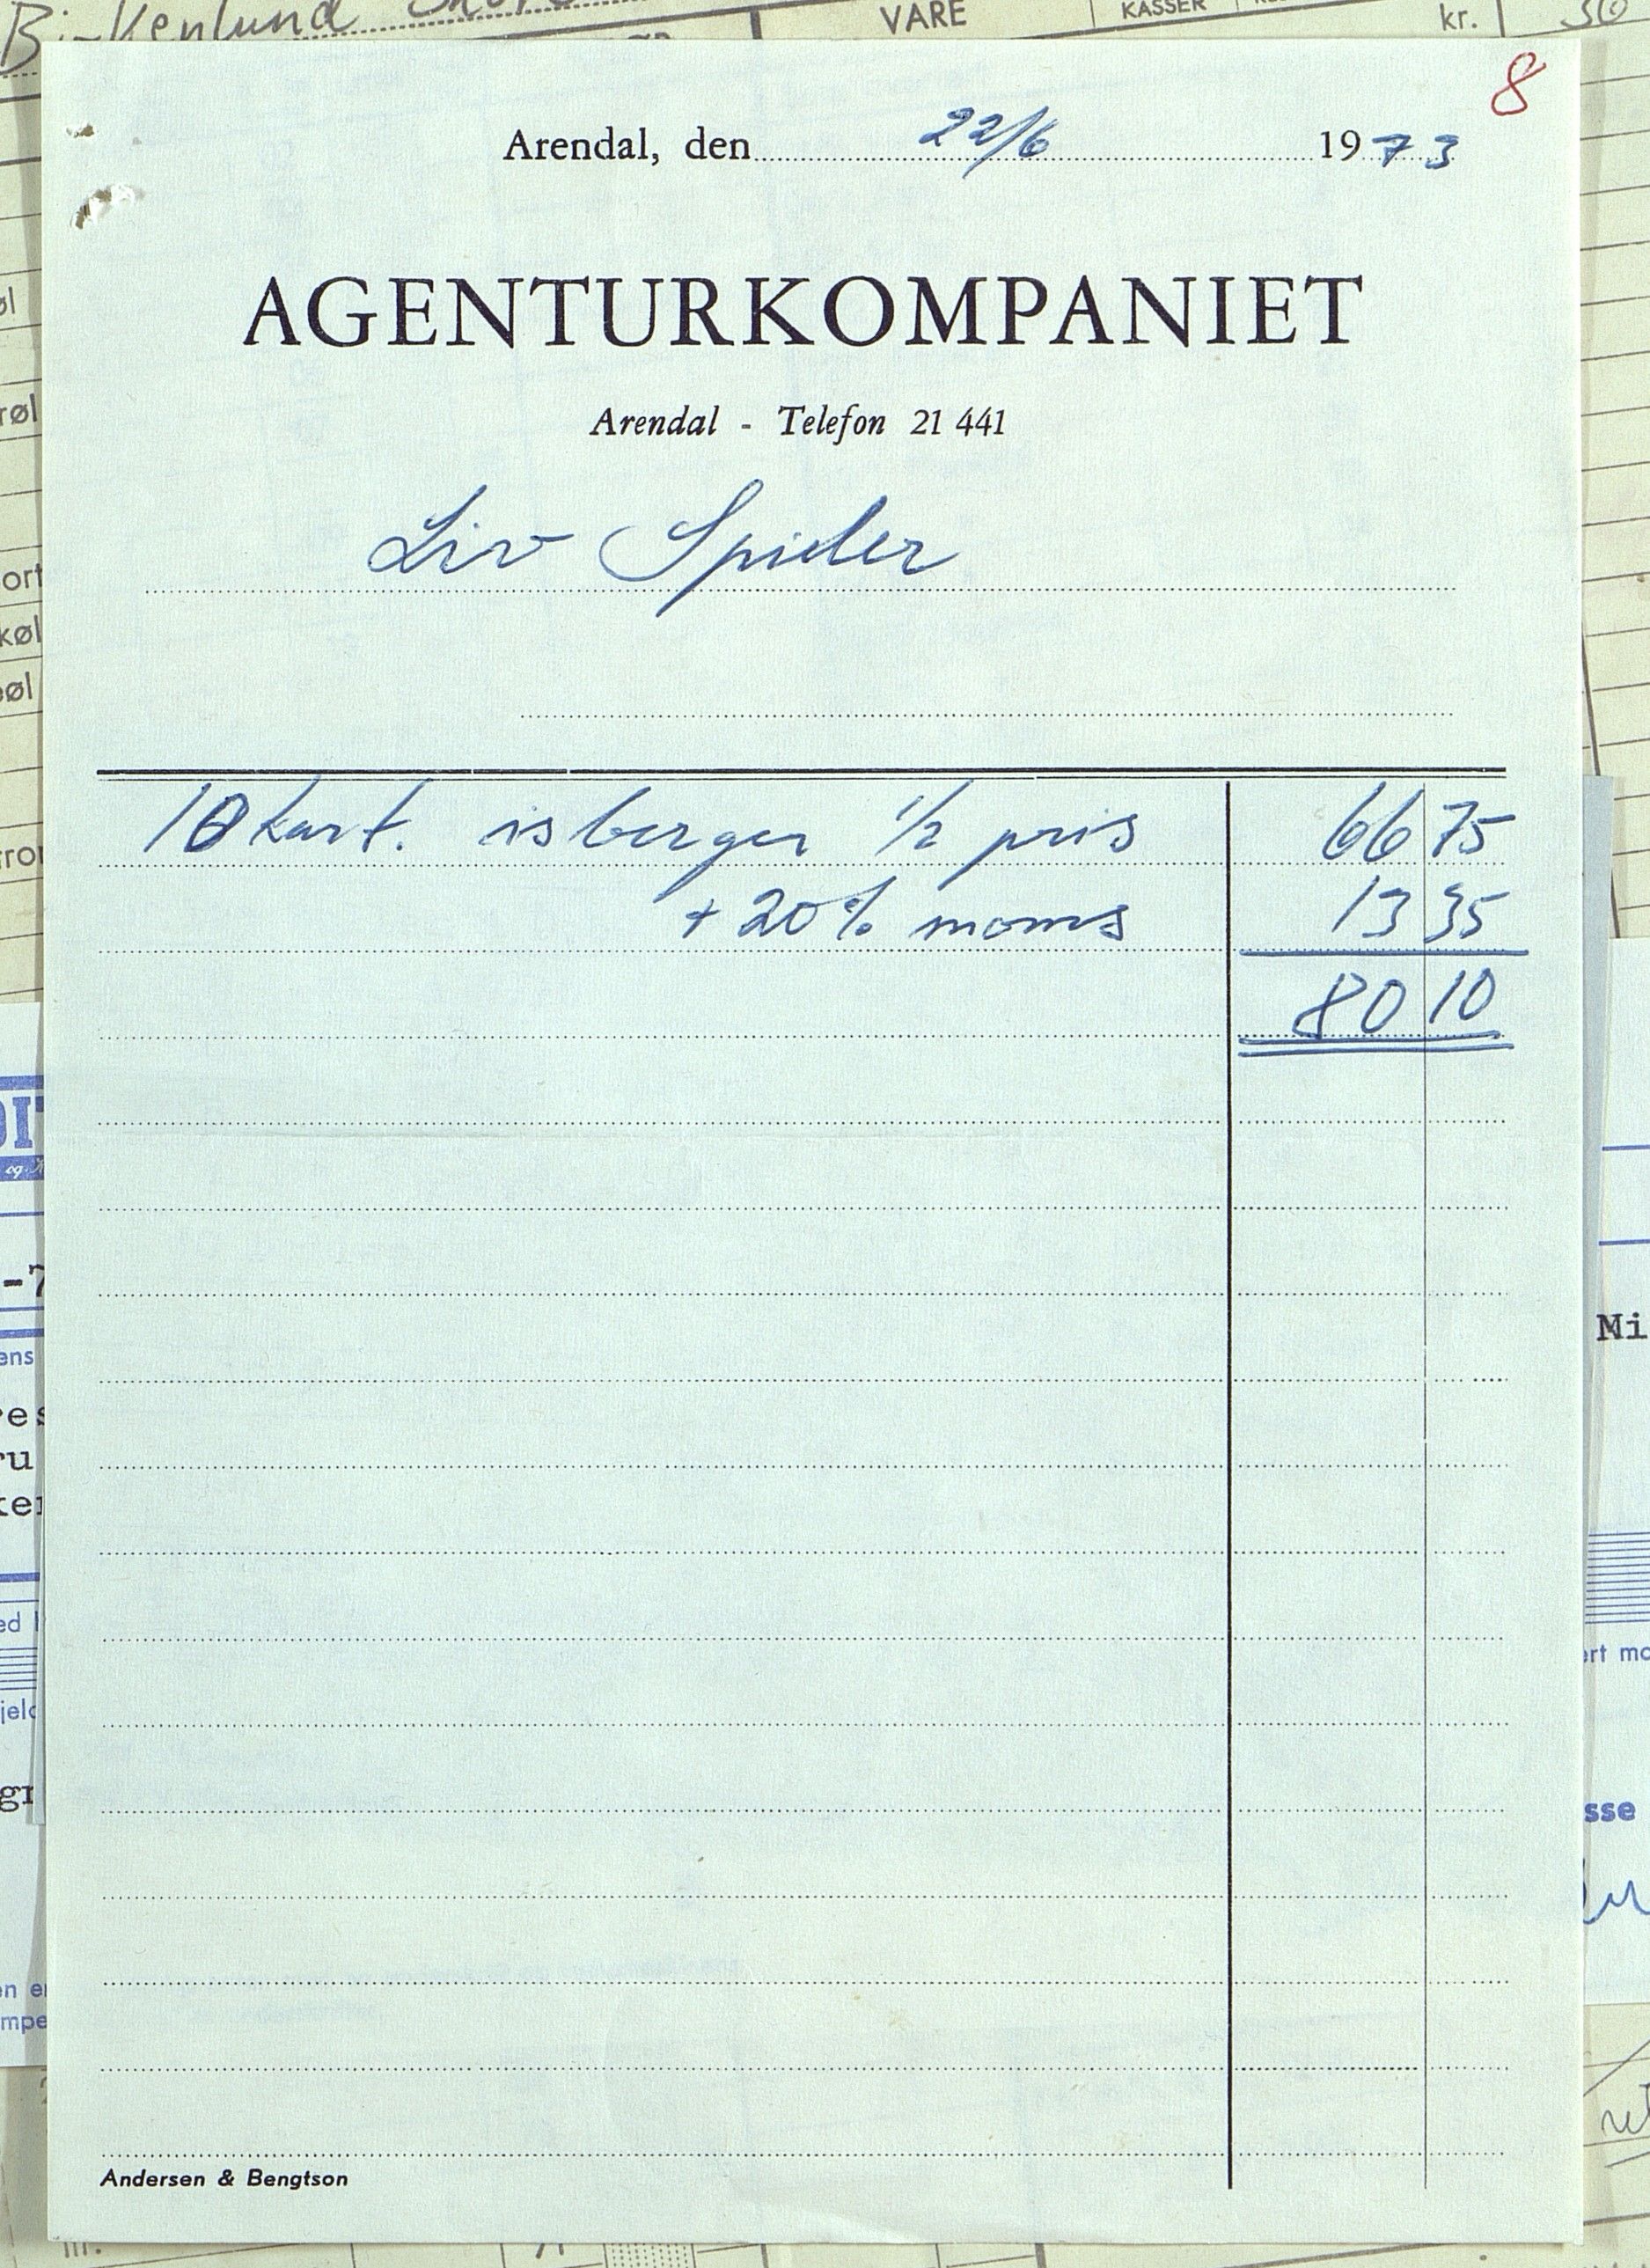 Birkenlund
VARE
KASSER
kr.
8
Arendal, den 22/6 1973
AGENTURKOMPANIET
Arendal - Telefon 21 441
Liv Spider
10 kart. isberger 1/2 pris 66 75
+ 20% moms 13 35
80 10
Andersen & Bengtson